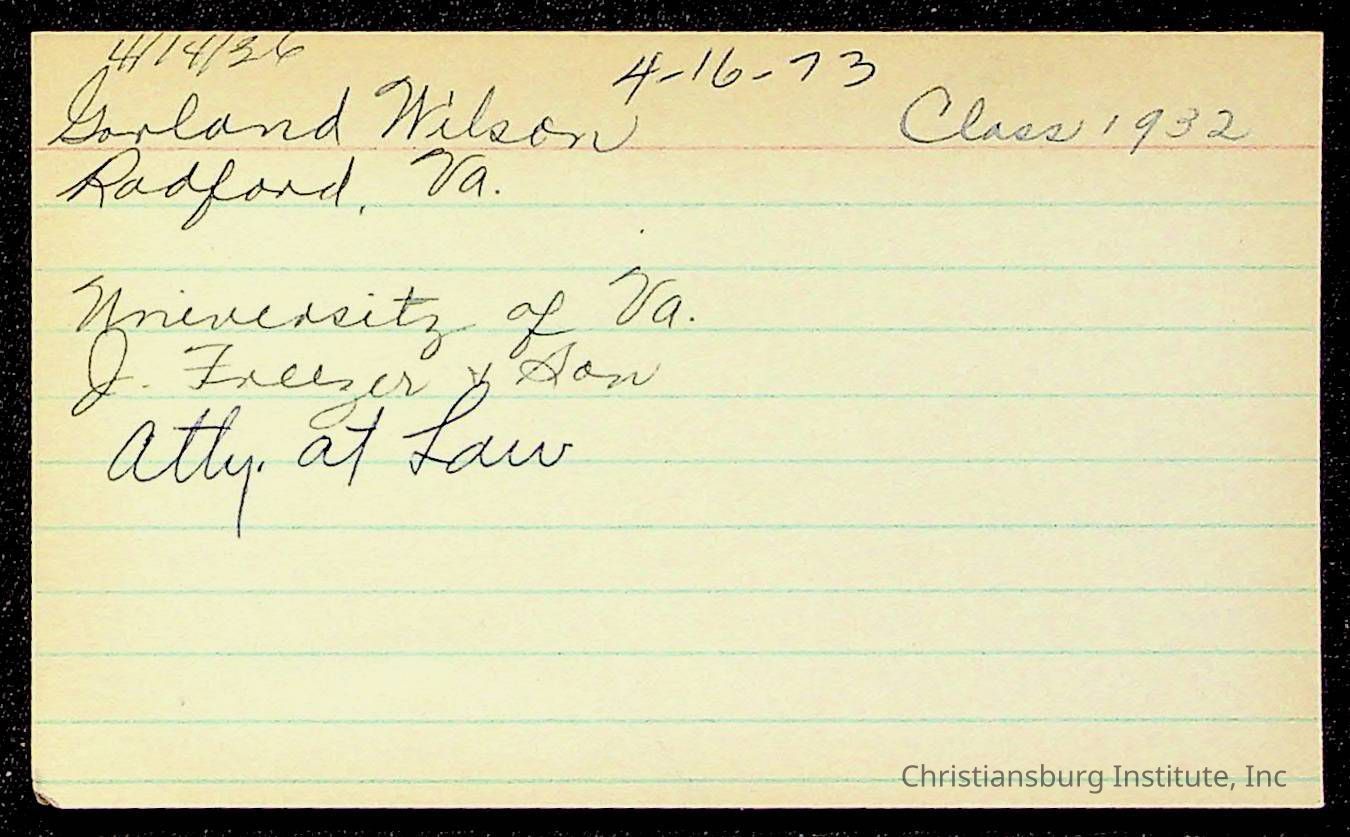 4/14/36
4-16-73
Garland Wilson
Class 1932
Radford, Va.
University of Va.
J. Freezer & Son
Atty. at Law
Christiansburg Institute, Inc